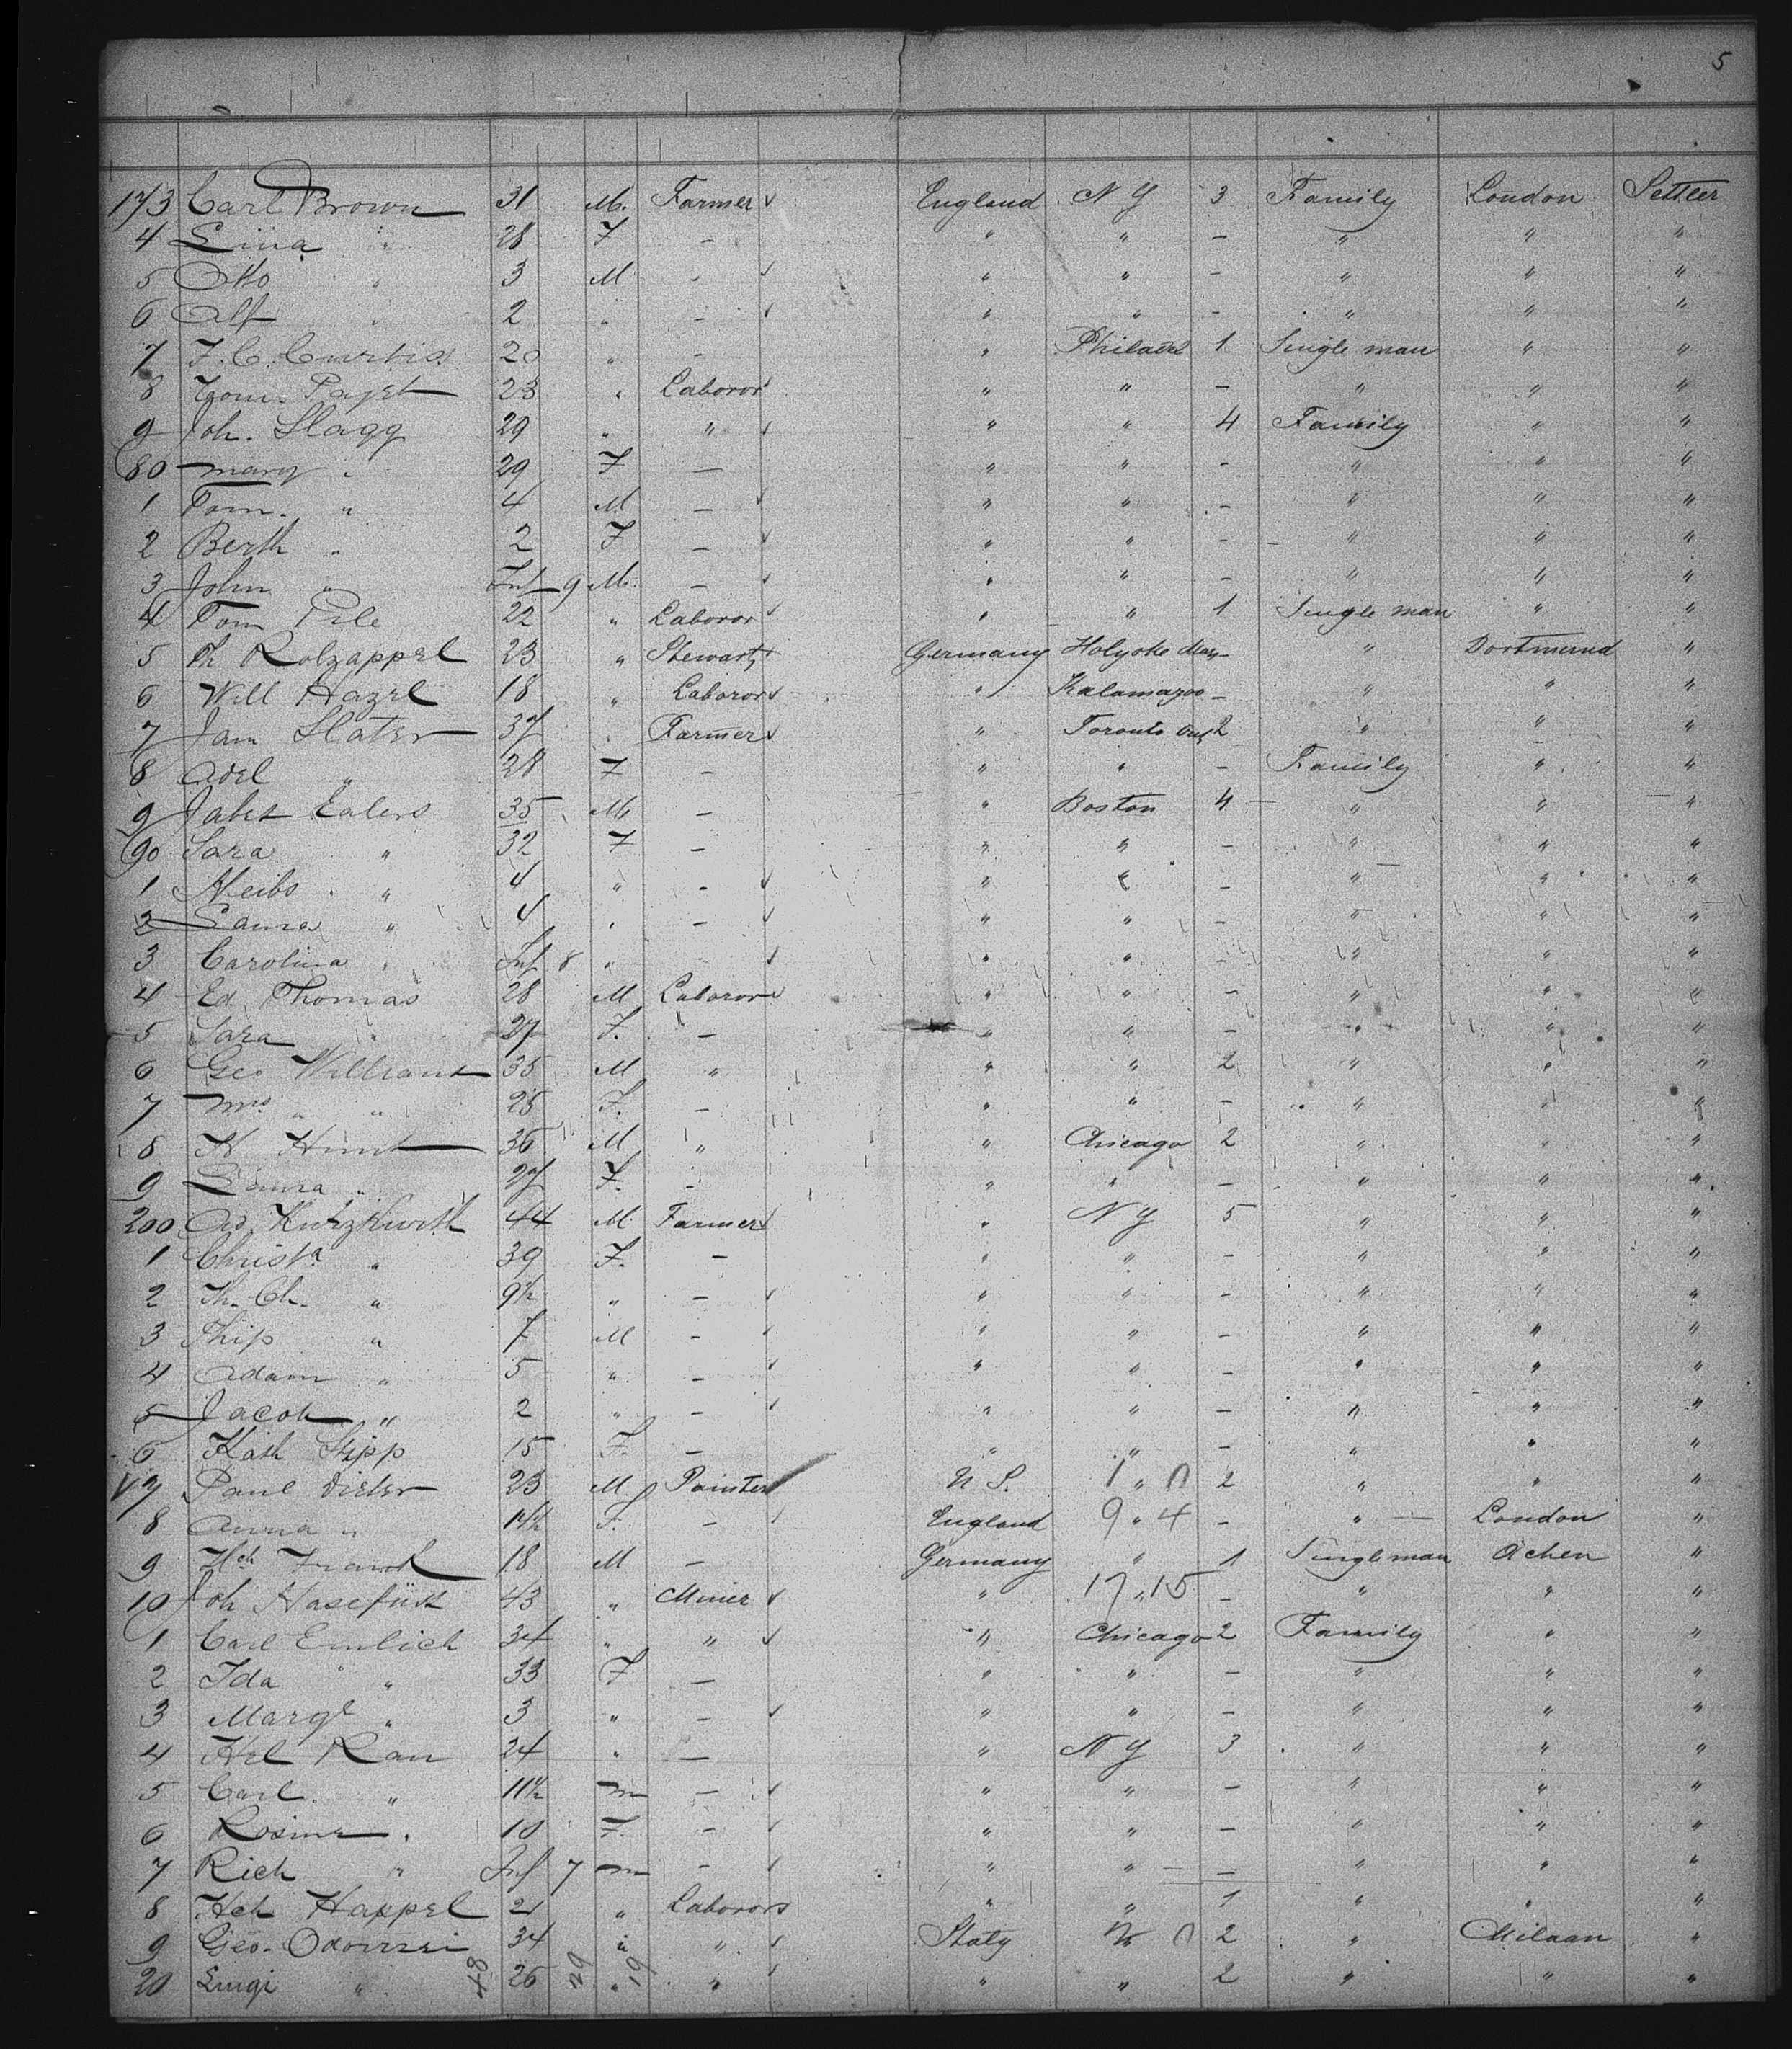 5
173 Carl Brown 31 M. Farmer England N Y 3 Family London Settler
4 Lina " 28 F - " " - " " "
5 Otto " 3 M - " " - " " "
6 Alf " 2 " - " " - " " "
7 F. C. Curtiss 20 " - " Philadel 1 Single man " "
8 Paget 23 " Laboror " " - " " "
9 Joh. Slagg 29 " " " " 4 Family " "
80 Mary " 29 F - " " - " " "
1 Tom. " 4 M - " " - " " "
2 Berth " 2 F - " " - " " "
3 John " Inf 9 M. - " " - " " "
4 Tom Pile 22 " Laboror " " 1 Single man " "
5 Th Rolzappel 23 " Stewart Germany Holyoke Mas - " Dortmund "
6 Will Hazel 18 " Laboror " Kalamazoo - " " "
7 Jam Slater 37 " Farmer " Toronto Ont 2 " " "
8 Adel " 28 F - " " - Family " "
9 Jabet Ealers 35 M - " Boston 4 " " "
90 Sara " 32 F - " " - " " "
1 Meibs " 4 " - " " - " " "
2 Laura " 4 " - " " - " " "
3 Carolina " Inf 8 " " " - " " "
4 Ed Thomas 28 M Laboror " " - " " "
5 Sara " 27 F. - " " - " " "
6 Geo Williams 35 M " " " 2 " " "
7 Mrs " " 25 F. - " " - " " "
8 H Hunt 36 M " " Chicago 2 " " "
9 Laura " 27 F. - " " - " " "
200 Ad. Kurzkurth 44 M. Farmer " N Y 5 " " "
1 Christa " 39 F. - " " - " " "
2 Th. Ch. " 9½ " - " " - " " "
3 Thip " 7 M - " " - " " "
4 Adam " 5 " - " " - " " "
5 Jacob " 2 " - " " - " " "
6 Kath Stipp 15 F. - " " - " " "
7 Paul Dieter 23 M Painter U S. " 2 " " "
8 Anna " 19½ F. - England 9 " 4 - " London "
9 Hch Frank 18 M - Germany " 1 Single man Achen "
10 Joh Hasefüst 43 " Miner " 17 " 15 - " " "
1 Carl Emlich 34 " " " Chicago 2 Family " "
2 Ida " 33 F - " " - " " "
3 Margt " 3 " - " " - " " "
4 Hel Rau 24 " - " N Y 3 " " "
5 Carl. " 11½ m - " " - " " "
6 Rosina " 10 F. - " " - " " "
7 Rich " Inf 7 m - " " - " " "
8 Hch Happel 21 " Laboror " " 1 " " "
9 Geo. 34 " " Italy 2 " Milaan "
20 Luigi " 48 26 29 " 19 " " " 2 " " "